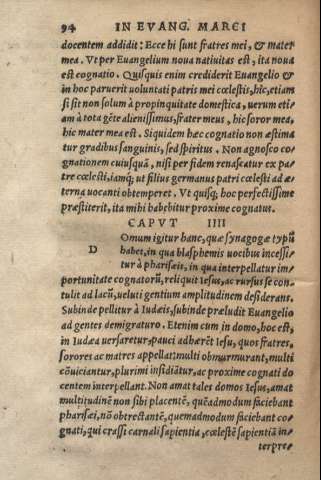 94 IN EVANG. MARCI
docentem addidit: Ecce hi sunt fratres mei, & mater
mea. Vt per Euangelium noua natiuitas est, ita noua
est cognatio. Quisquis enim crediderit Euangelio &
in hoc paruerit uoluntati patris mei cœlestis, hic, etiam
si sit non solum à propinquitate domestica, uerum eti-
am à tota gẽte alienissimus, frater meus, hic soror mea,
hic mater mea est. Siquidem hæc cognatio non æstima
tur gradibus sanguinis, sed spiritus. Non agnosco co-
gnationem cuiusquã, nisi per fidem renascatur ex pa-
tre cœlesti, iamq; ut filius germanus patri cœlesti ad æ-
terna uocanti obtemperet. Vt quisq; hoc perfectissime
præstiterit, ita mihi habebitur proxime cognatus.
CAPVT IIII
D
Omum igitur hanc, quæ synagogæ typũ
habet, in qua blasphemis uocibus incessi-
tur à pharisæis, in qua interpellatur im-
portunitate cognatorũ, reliquit Iesus, ac rursus se con-
tulit ad lacũ, ueluti gentium amplitudinem desiderans.
Subinde pellitur à Iudæis, subinde præludit Euangelio
ad gentes demigraturo. Etenim cum in domo, hoc est,
in Iudæa uersaretur, pauci adhærẽt Iesu, quos fratres,
sorores ac matres appellat: multi obmurmurant, multi
cõuiciantur, plurimi insidiãtur, ac proxime cognati do
centem interpellant. Non amat tales domos Iesus, amat
multitudinẽ non sibi placentẽ, quẽadmodum faciebant
pharisæi, nõ obtrectantẽ, quemadmodum faciebant co-
gnati, qui crassi carnali sapientia, cœlestẽ sapientiã in-
terpre-